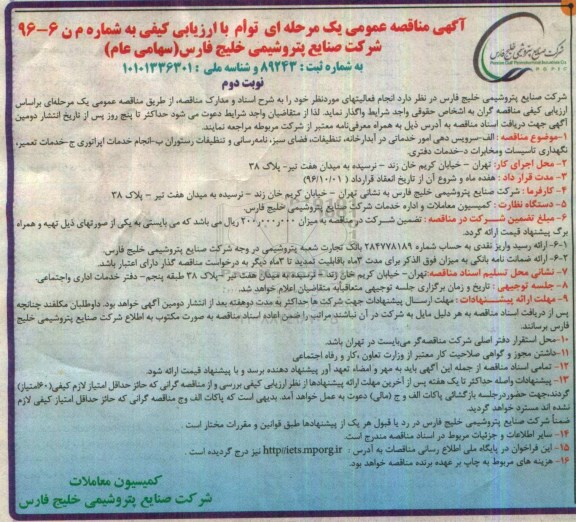 آگهی مناقصه عمومی یک مرحله ای توأم با ارزیابی کیفی به شماره م ن ۶-۹۶
شرکت صنایع پتروشیمی خلیج فارس(سهامی عام)
به شماره ثبت : ۸۹۲۴۳ و شناسه ملی : ۱۰۱۰۱۳۳۶۳۰۱
نوبت دوم
شرکت صنایع پتروشیمی خلیج فارس
Persian Gulf Petrochemical Industries Co.
PGPIC
شرکت صنایع پتروشیمی خلیج فارس در نظر دارد انجام فعالیتهای موردنظر خود را به شرح اسناد و مدارک مناقصه، از طریق مناقصه عمومی یک مرحله‌ای براساس
ارزیابی کیفی مناقصه گران به اشخاص حقوقی واجد شرایط واگذار نماید. لذا از متقاضیان واجد شرایط دعوت می شود حداکثر تا پنج روز پس از تاریخ انتشار دومین
آگهی جهت دریافت اسناد مناقصه به آدرس ذیل به همراه معرفی‌نامه معتبر از شرکت مربوطه مراجعه نمایند.
۱-موضوع مناقصه : الف-سرویس دهی امور خدماتی در آبدارخانه، تنظیفات، فضای سبز، نامه‌رسانی و تنظیفات رستوران ب-انجام خدمات اپراتوری ج-خدمات تعمیر،
نگهداری تاسیسات ومخابرات د-خدمات دفتری.
۲- محل اجرای کار: تهران - خیابان کریم خان زند - نرسیده به میدان هفت تیر- پلاک ۳۸
۳- مدت قرار داد : هفده ماه و شروع آن از تاریخ انعقاد قرارداد ( ۹۶/۱۰/۰۱)
۴- کارفرما : شرکت صنایع پتروشیمی خلیج فارس به نشانی تهران - خیابان کریم خان زند - نرسیده به میدان هفت تیر - پلاک ۳۸
۵- دستگاه نظارت : کمیسیون معاملات و اداره خدمات شرکت صنایع پتروشیمی خلیج فارس.
۶- مبلغ تضمین شــرکت در مناقصه : تضمین شــرکت در مناقصه به میزان ۲۰۰٫۰۰۰٫۰۰۰ ریال می باشد که می بایستی به یکی از صورتهای ذیل تهیه و همراه
برگ پیشنهاد قیمت ارائه گردد.
۶-۱- ارائه رسید واریز نقدی به حساب شماره ۲۸۴۷۷۸۱۸۹ بانک تجارت شعبه پتروشیمی در وجه شرکت صنایع پتروشیمی خلیج فارس.
۶-۲- ارائه ضمانت نامه بانکی به میزان فوق الذکر برای مدت ۳ماه باقابلیت تمدید تا ۳ماه دیگر به درخواست مناقصه گذار دارای اعتبار باشد.
۷- نشانی محل تسلیم اسناد مناقصه:تهران- خیابان کریم خان زند - نرسیده به میدان هفت تیر -پلاک ۳۸ طبقه پنجم- دفتر خدمات اداری واجتماعی.
۸- جلسه توجیهی : تاریخ و زمان برگزاری جلسه توجیهی متعاقباًبه متقاضیان اعلام خواهد شد.
۹- مهلت ارائه پیشــنهادات : مهلت ارســال پیشنهادات جهت شرکت ها حداکثر به مدت دوهفته بعد از انتشار دومین آگهی خواهد بود. داوطلبان مکلفند چنانچه
پس از دریافت اسناد مناقصه به هر دلیل مایل به شرکت در آن نباشند مراتب را ضمن اعاده اسناد مناقصه به صورت مکتوب به اطلاع شرکت صنایع پتروشیمی خلیج
فارس برسانند.
۱۰-محل استقرار دفتر اصلی شرکت مناقصه‌گر می‌بایست در تهران باشد.
۱۱- داشتن مجوز و گواهی صلاحیت کار معتبر از وزارت تعاون ،کار و رفاه اجتماعی
۱۲- تمامی اسناد مناقصه از جمله این آگهی باید به مهر و امضاء تعهد آور پیشنهاد دهنده برسد و با پیشنهاد قیمت ارائه شود.
۱۳- پیشنهادات واصله حداکثر تا یک هفته پس از آخرین مهلت ارائه پیشنهادها از نظر ارزیابی کیفی بررسی و از مناقصه گرانی که حائز حداقل امتیاز لازم کیفی(۶۰امتیاز)
گردند،جهت حضوردرجلسه بازگشائی پاکات الف و ج (مالی) دعوت به عمل خواهد آمد. بدیهی است که پاکات الف وج مناقصه گرانی که حائز حداقل امتیاز کیفی لازم
نشده اند مسترد خواهد گردید.
ضمناً شرکت صنایع پتروشیمی خلیج فارس در رد یا قبول هر یک از پیشنهادها طبق قوانین و مقررات مختار است .
۱۴- سایر اطلاعات و جزئیات مربوط در اسناد مناقصه مندرج است.
۱۵- این فراخوان در پایگاه ملی اطلاع رسانی مناقصات به آدرس : http//iets.mporg.ir نیز درج گردیده است .
۱۶- هزینه های مربوط به چاپ بر عهده برنده مناقصه خواهد بود.
کمیسیون معاملات
شرکت صنایع پتروشیمی خلیج فارس